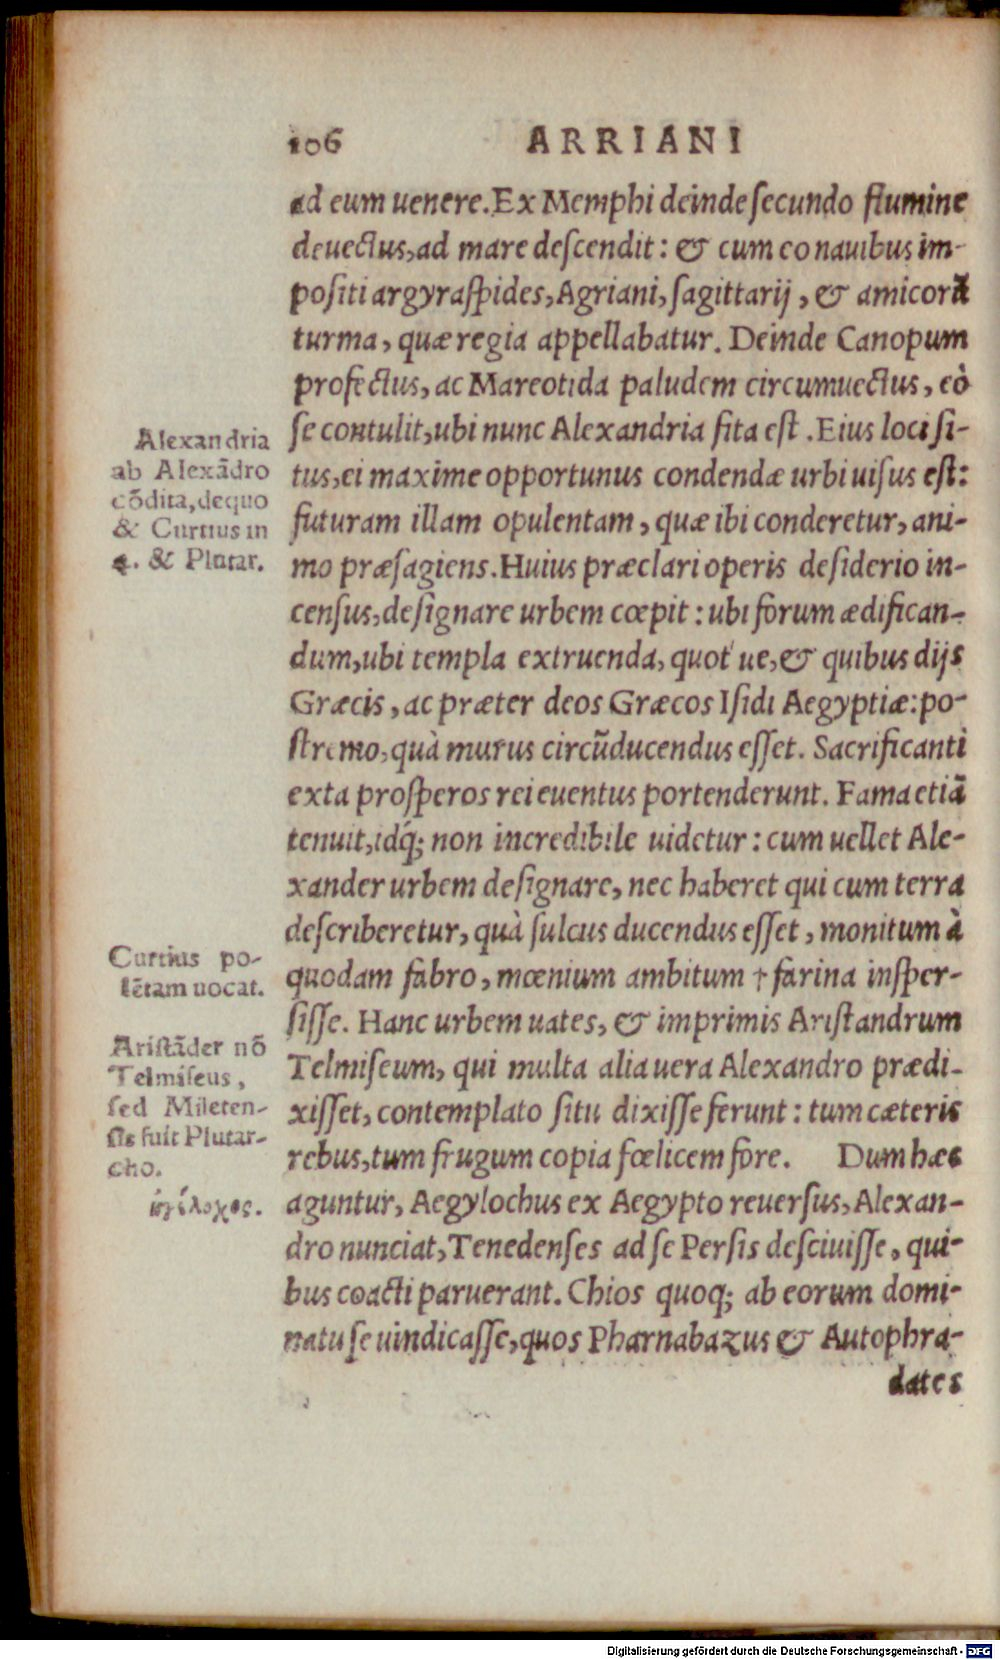 106 ARRIANI
ad eum uenere. Ex Memphi deinde ſecundo flumine
deuectus, ad mare deſcendit: & cum eo nauibus im-
poſiti argyraſpides, Agriani, ſagittarij, & amicorū
turma, quæ regia appellabatur. Deinde Canopum
profectus, ac Mareotida paludem circumuectus, eò
ſe contulit, ubi nunc Alexandria ſita eſt. Eius loci ſi-
tus, ei maxime opportunus condendæ urbi uiſus eſt:
futuram illam opulentam, quæ ibi conderetur, ani-
mo præſagiens. Huius præclari operis deſiderio in-
cenſus, deſignare urbem cœpit: ubi forum ædifican-
dum, ubi templa extruenda, quot ue, & quibus dijs
Græcis, ac præter deos Græcos Iſidi Aegyptiæ: po-
ſtremo, quà murus circūducendus eſſet. Sacrificanti
exta proſperos rei euentus portenderunt. Fama etiā
tenuit, idq́; non incredibile uidetur: cum uellet Ale-
xander urbem deſignare, nec haberet qui cum terra
deſcriberetur, quà ſulcus ducendus eſſet, monitum à
quodam fabro, mœnium ambitum † farina inſper-
ſiſſe. Hanc urbem uates, & imprimis Ariſtandrum
Telmiſeum, qui multa alia uera Alexandro prædi-
xiſſet, contemplato ſitu dixiſſe ferunt: tum cæteris
rebus, tum frugum copia fœlicem fore. Dum hæc
aguntur, Aegylochus ex Aegypto reuerſus, Alexan-
dro nunciat, Tenedenſes ad ſe Perſis deſciuiſſe, qui-
bus coacti paruerant. Chios quoq; ab eorum domi-
natu ſe uindicaſſe, quos Pharnabazus & Autophra-
dates
Alexandria
ab Alexādro
cōdita, de quo
& Curtius in
4. & Plutar.
Curtius po-
lētam uocat.
Ariſtāder nō
Telmiſeus,
ſed Mileten-
ſis fuit Plutar-
cho.
Digitalisierung gefördert durch die Deutsche Forschungsgemeinschaft - DFG